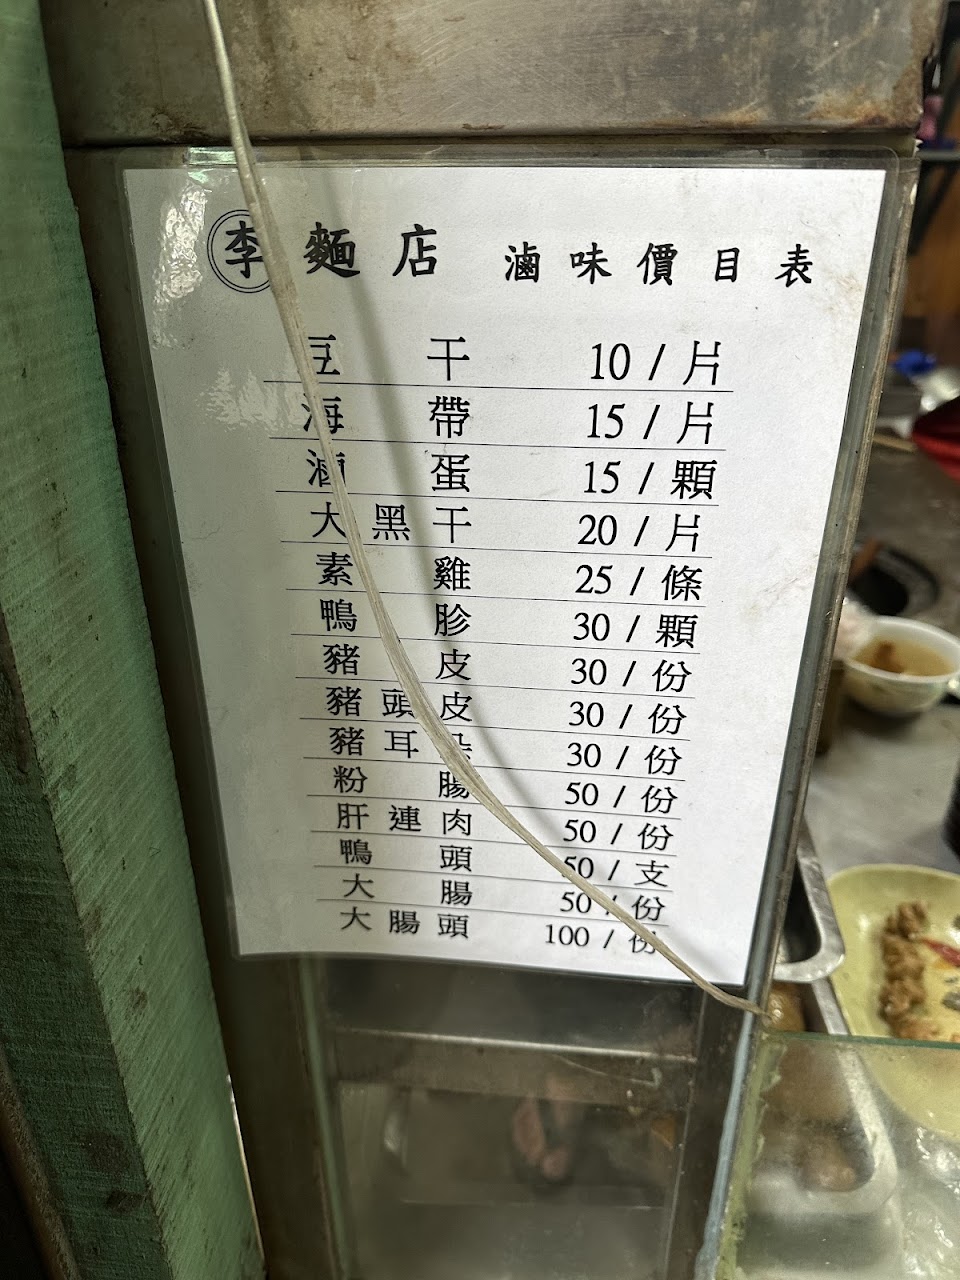 李麵店 滷味價目表
豆干 10 / 片
海帶 15 / 片
滷蛋 15 / 顆
大黑干 20 / 片
素雞 25 / 條
鴨胗 30 / 顆
豬皮 30 / 份
豬頭皮 30 / 份
豬耳朵 30 / 份
粉腸 50 / 份
肝連肉 50 / 份
鴨頭 50 / 支
大腸 50 / 份
大腸頭 100 / 份